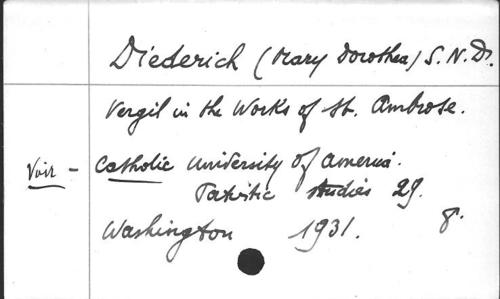 Diederich (Mary Dorothea) S.N.D.
Vergil in the Works of St. Ambrose.
Voir - Catholic University of America.
Patristic Studies 29.
Washington 1931. 8°.